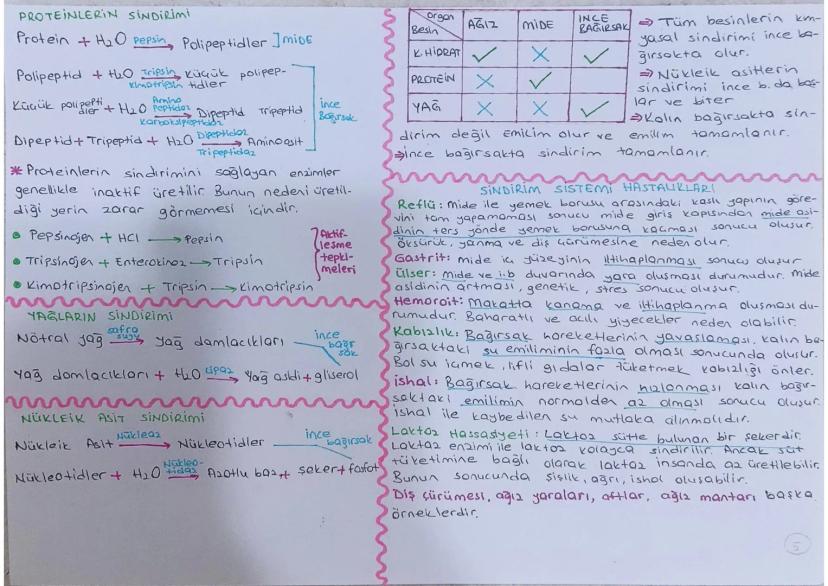 PROTEİNLERİN SİNDİRİMİ
Protein + H2O pepsin Polipeptidler ] MİDE
Polipeptid + H2O Tripsin Kimotripsin Küçük polipep-
tidler
Küçük polipepti
dler + H2O Amino peptidaz Karboksipeptidaz Dipeptid Tripeptid
İnce
Bağırsak
Dipeptid + Tripeptid + H2O Dipeptidaz Tripeptidaz Aminoasit
* Proteinlerin sindirimini sağlayan enzimler
genellikle inaktif üretilir. Bunun nedeni üretil-
diği yerin zarar görmemesi içindir.
• Pepsinojen + HCl → Pepsin
• Tripsinojen + Enterokinaz → Tripsin
• Kimotripsinojen + Tripsin → Kimotripsin
Aktif-
leşme
tepki-
meleri
YAĞLARIN SİNDİRİMİ
Nötral yağ safra suyu Yağ damlacıkları
ince
bağır
sak
Yağ damlacıkları + H2O Lipaz Yağ asidi + gliserol
NÜKLEİK ASİT SİNDİRİMİ
Nükleik Asit Nükleaz Nükleotidler
ince
bağırsak
Nükleotidler + H2O Nükleo-tidaz Azotlu baz + şeker + fosfat
Organ Besin AĞIZ MİDE İNCE BAĞIRSAK
K.HİDRAT ✓ X ✓
PROTEİN X ✓ ✓
YAĞ X X ✓
⇒ Tüm besinlerin kim-
yasal sindirimi ince ba-
ğırsakta olur.
⇒ Nükleik asitlerin
sindirimi ince b. da baş-
lar ve biter
⇒ Kalın bağırsakta sin-
dirim değil emilim olur ve emilim tamamlanır.
⇒ İnce bağırsakta sindirim tamamlanır.
SİNDİRİM SİSTEMİ HASTALIKLARI
Reflü: Mide ile yemek borusu arasındaki kaslı yapının göre-
vini tam yapamaması sonucu mide giriş kapısından mide asi-
dinin ters yönde yemek borusuna kaçması sonucu oluşur.
Öksürük, yanma ve diş çürümesine neden olur.
Gastrit: mide iç yüzeyinin iltihaplanması sonucu oluşur
Ülser: mide ve i.b duvarında yara oluşması durumudur. Mide
asidinin artması, genetik, stres sonucu oluşur.
Hemoroit: Makatta kanama ve iltihaplanma oluşması du-
rumudur. Baharatlı ve acılı yiyecekler neden olabilir.
Kabızlık: Bağırsak hareketlerinin yavaşlaması, kalın ba-
ğırsaktaki su emiliminin fazla olması sonucunda oluşur.
Bol su içmek, lifli gıdalar tüketmek kabızlığı önler.
İshal: Bağırsak hareketlerinin hızlanması kalın bağır-
saktaki emilimin normalden az olması sonucu oluşur.
ishal ile kaybedilen su mutlaka alınmalıdır.
Laktoz Hassasiyeti: Laktoz sütte bulunan bir şekerdir.
Laktaz enzimi ile laktoz kolayca sindirilir. Ancak süt
tüketimine bağlı olarak laktaz insanda az üretilebilir.
Bunun sonucunda şişlik, ağrı, ishal oluşabilir.
Diş çürümesi, ağız yaraları, aftlar, ağız mantarı başka
örneklerdir.
5